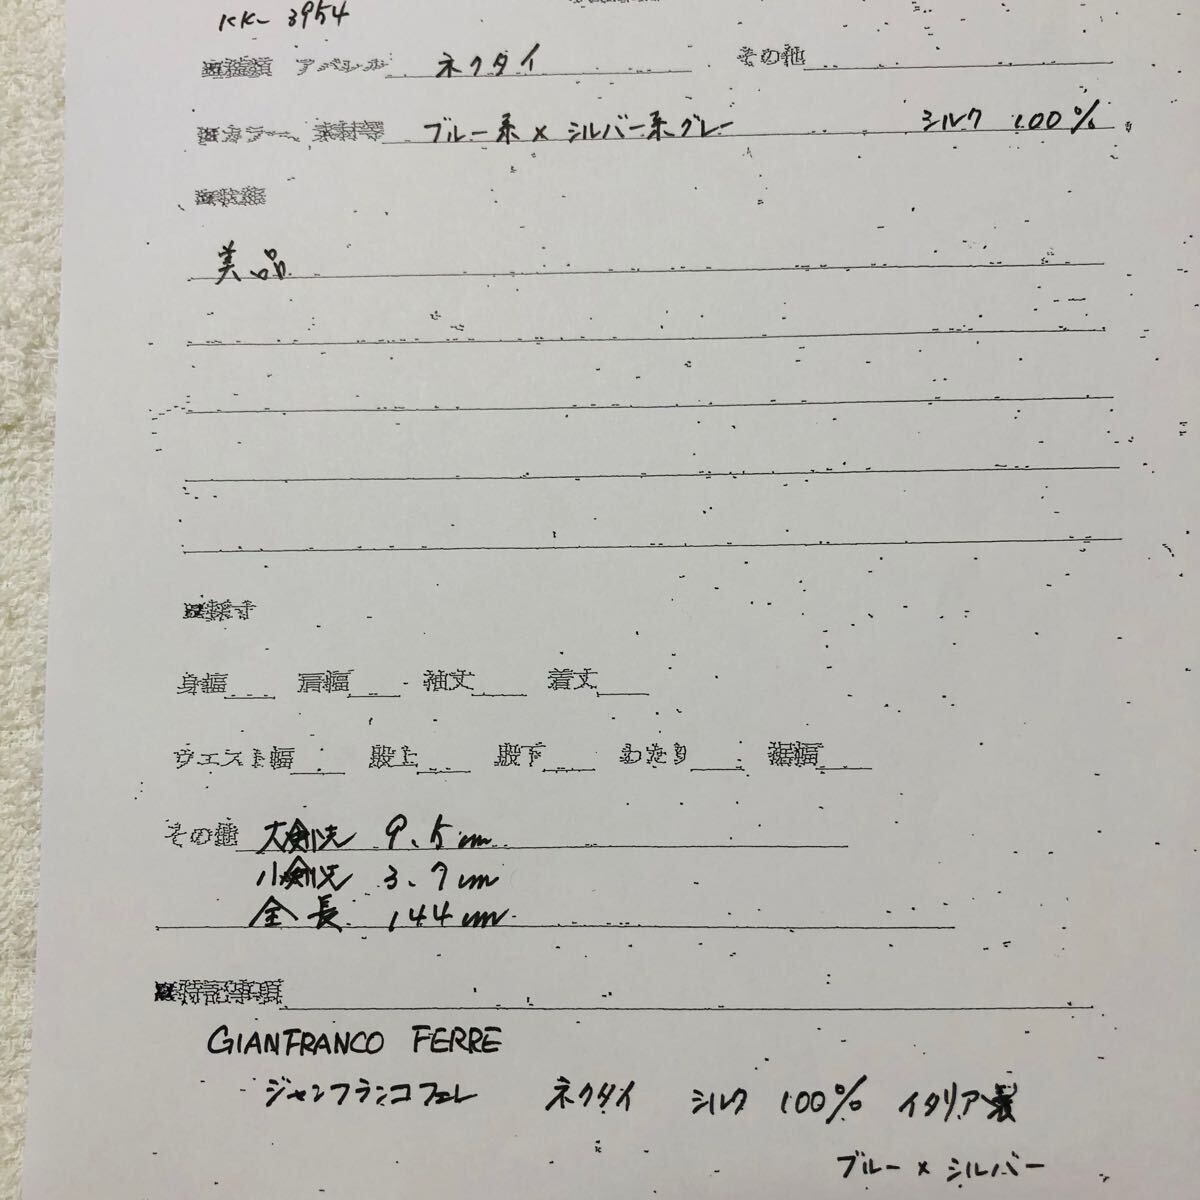 KK- 3954
■種類 アパレル ネクタイ その他
■カラー、素材等 ブルー系×シルバー系グレー シルク 100%
■状態
美品
■採寸
身幅 肩幅 袖丈 着丈
ウエスト幅 股上 股下 わたり 裾幅
その他 大剣先 9.5cm
小剣先 3.7cm
全長 144cm
■特記事項
GIANFRANCO FERRE
ジャンフランコフェレ ネクタイ シルク 100% イタリア製
ブルー×シルバー